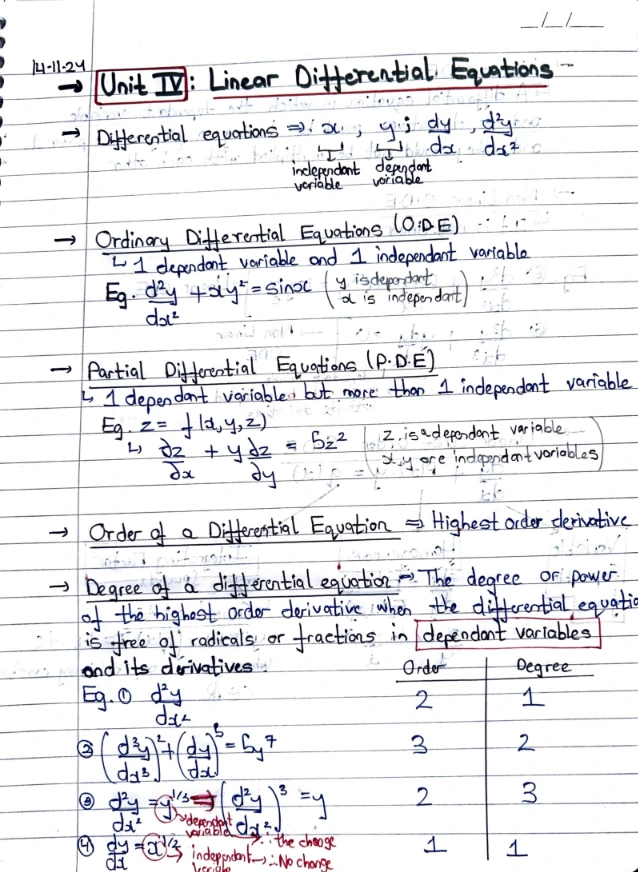 _/_/_
14-11-24
→ Unit IV: Linear Differential Equations
→ Differential equations ⇒ x, y; dy/dx, d²y/dx²
independant variable dependant variable
→ Ordinary Differential Equations (O.D.E)
↳ 1 dependant variable and 1 independant variable
Eg. d²y/dx² + xy² = sinx (y is dependant
x is independant)
→ Partial Differential Equations (P.D.E)
↳ 1 dependant variable, but more than 1 independant variable
Eg. z = f(x,y,z)
↳ ∂z/∂x + y ∂z/∂y = 5z² (z is a dependant variable
x,y are independant variables)
→ Order of a Differential Equation ⇒ Highest order derivative
→ Degree of a differential equation ⇒ The degree or power
of the highest order derivative when the differential equatio
is free of radicals or fractions in dependant variables
and its derivatives. Order Degree
Eg. ① d²y/dx² 2 1
② (d³y/dx³)² + (dy/dx)⁵ = 6y⁷ 3 2
③ d²y/dx² = y^1/3 ⇒ (d²y/dx²)³ = y 2 3
↘ dependant variable ∴ the change
④ dy/dx = x^1/2 1 1
↳ independant variable → ∴ No change